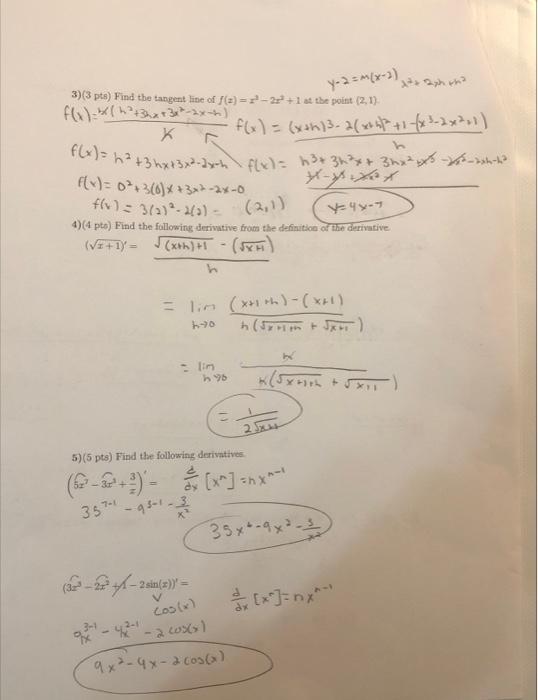 y-2=m(x-2) x²+2xh+h²
3)(3 pts) Find the tangent line of f(x) = x³ − 2x² + 1 at the point (2,1).
f(x)= h(h²+3hx+3x²-2x-h)
h
f(x) = (x+h)3-2(x+h)²+1-(x³-2x²+1)
h
f(x)= h²+3hx+3x²-2x-h
f(x)= h³+3h²x+3hx²+x³-2x²-2xh-h²
f(x)= 0²+3(0)x+3x²-2x-0
f(x)= 3(2)²-2(2)= (2,1)
y=4x-7
4)(4 pts) Find the following derivative from the definition of the derivative.
(√x+1)′ = √(x+h)+1 - (√x+1)
h
= lim (x+1+h)-(x+1)
h→0 h(√x+1+h + √x+1)
= lim h
h→0 h(√x+1+h + √x+1)
= 1
2√x+1
5)(5 pts) Find the following derivatives.
(5x⁷ − 3x³ + 3/x)′ = d/dx [xⁿ]=nxⁿ⁻¹
35⁷⁻¹ - 9³⁻¹ - 3/x²
35x⁶-9x²-3/x²
(3x³ − 2x² + 1 − 2sin(x))′ =
cos(x) d/dx [xⁿ]=nxⁿ⁻¹
9x³⁻¹ - 4x²⁻¹ - 2cos(x)
9x²-4x-2cos(x)